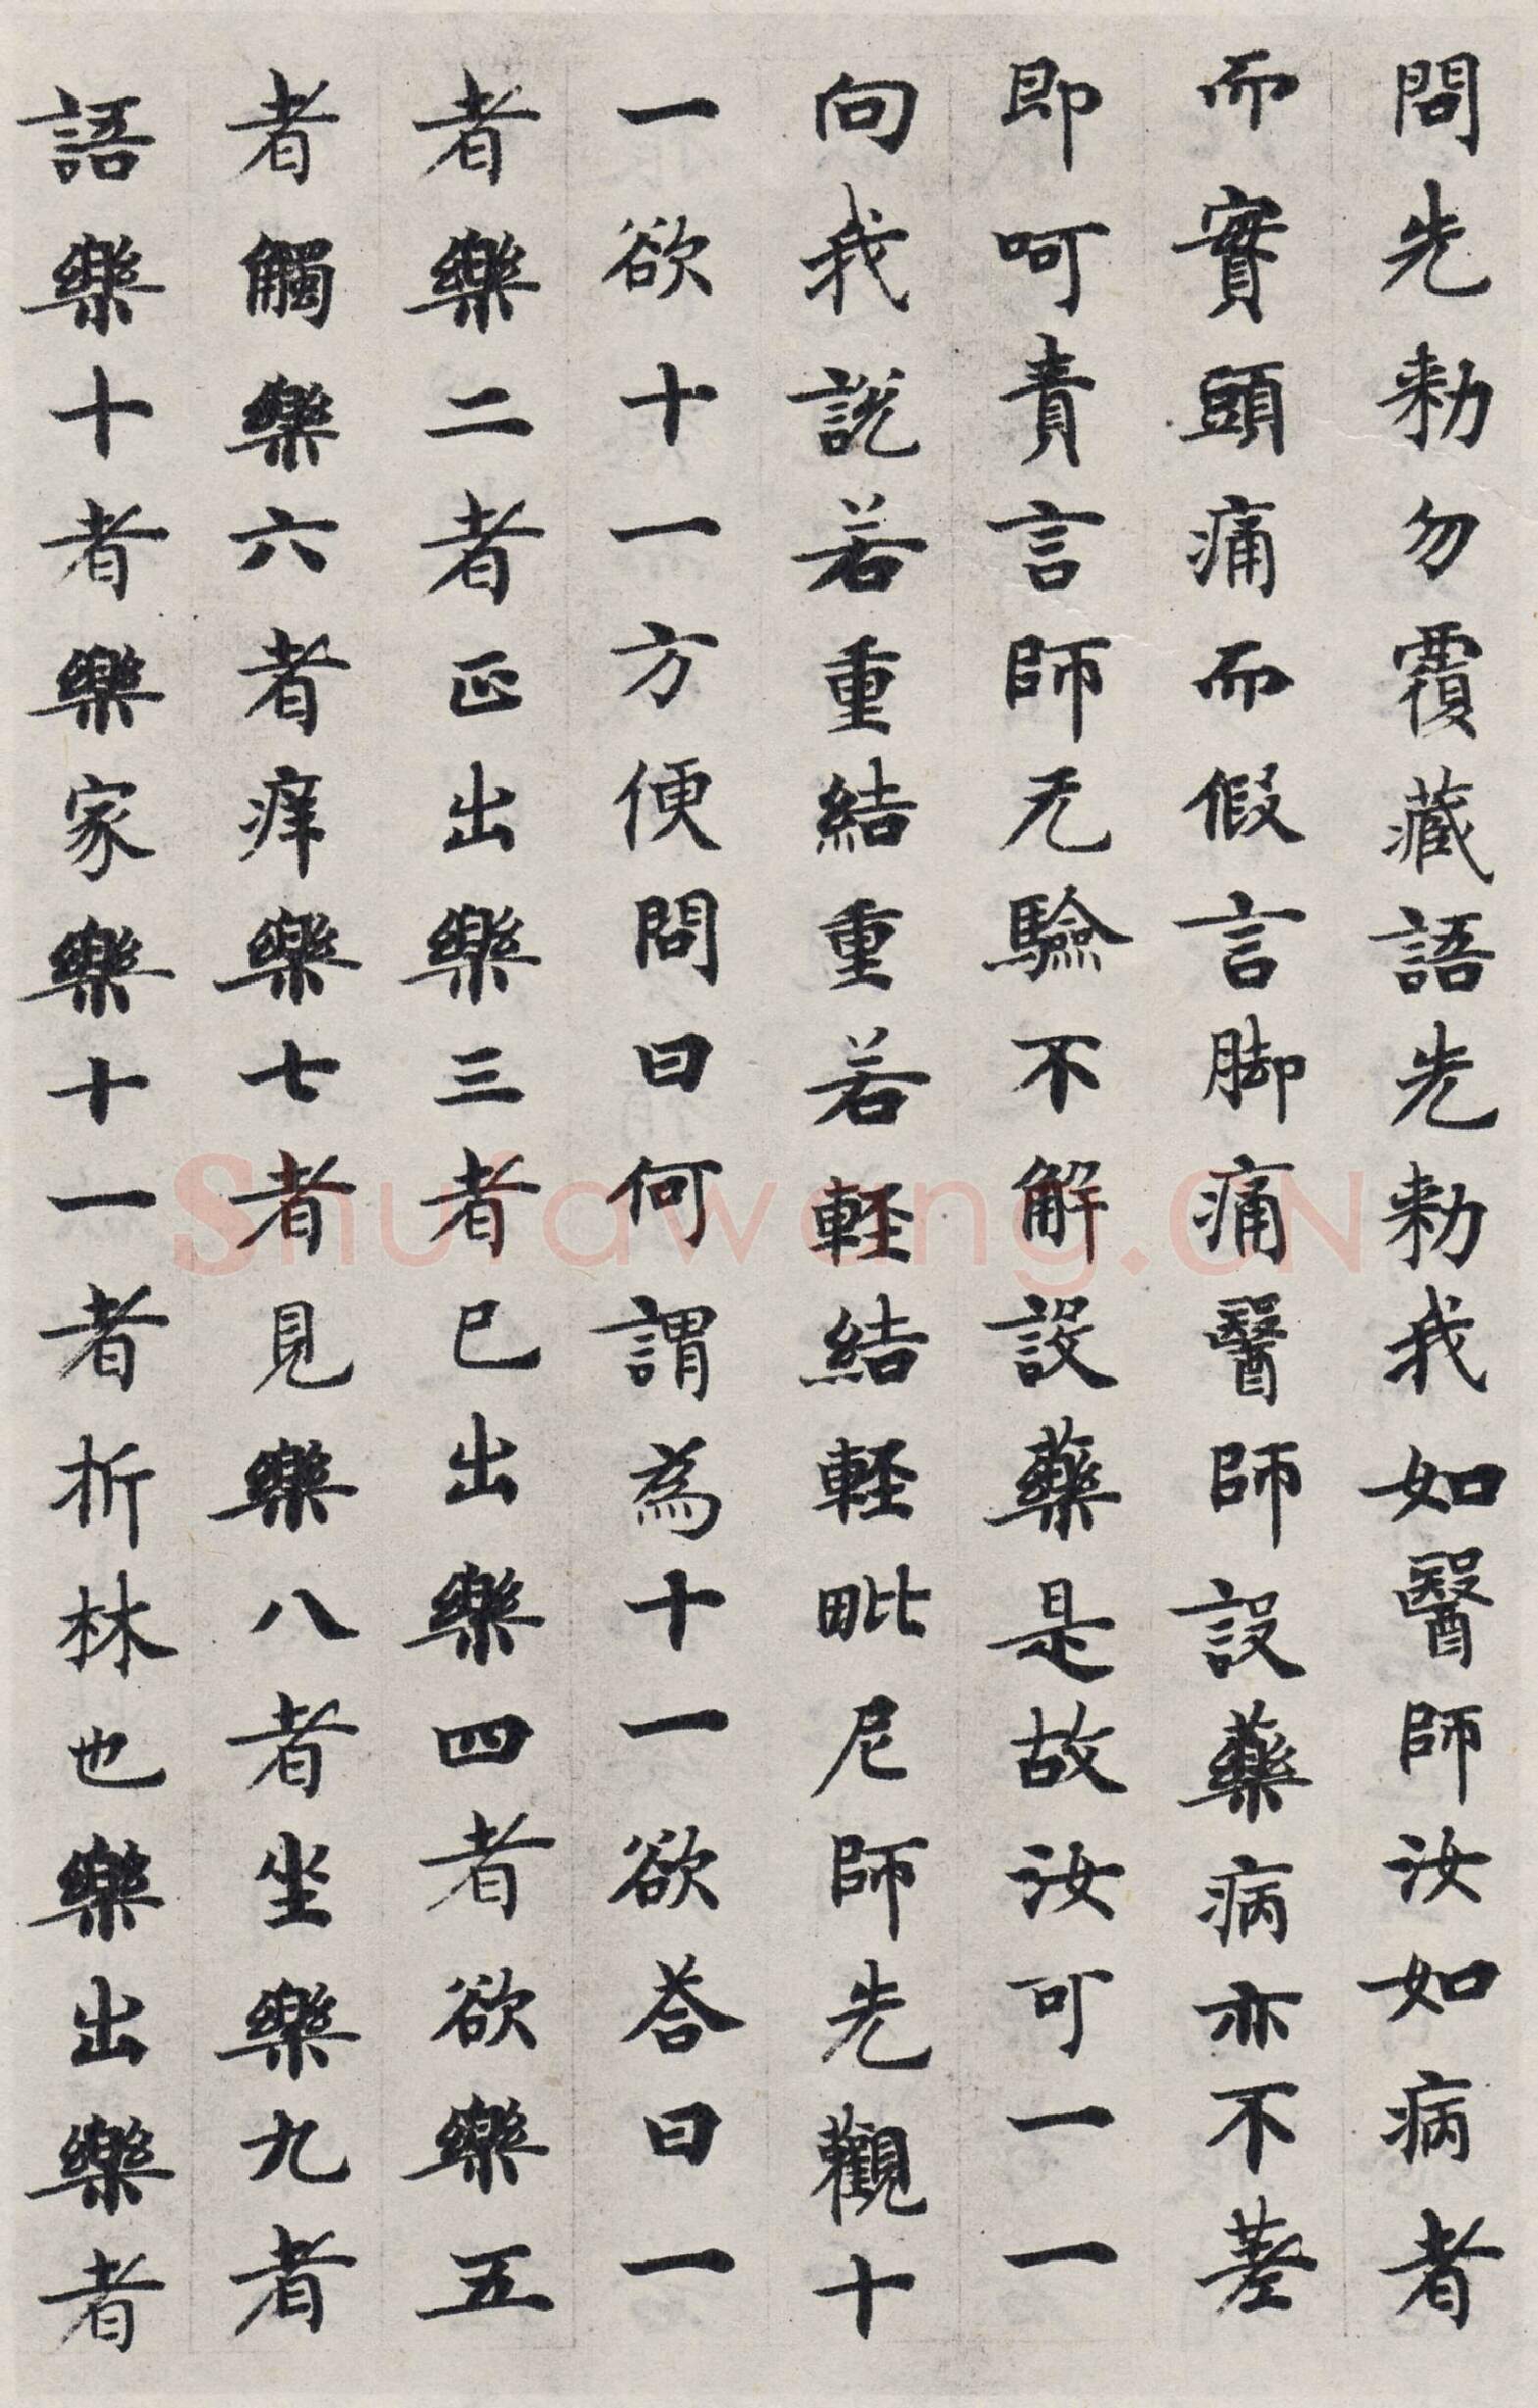 問先勑勿覆藏語先勑我如醫師汝如病者
而實頭痛而假言脚痛醫師設藥病亦不差
即呵責言師无驗不解設藥是故汝可一一
向我説若重結重若軽結軽毗尼師先觀十
一欲十一方便問曰何謂為十一欲荅曰一
者樂二者正出樂三者已出樂四者欲樂五
者觸樂六者痒樂七者見樂八者坐樂九者
語樂十者樂家樂十一者折林也樂出樂者
Shufawang.CN